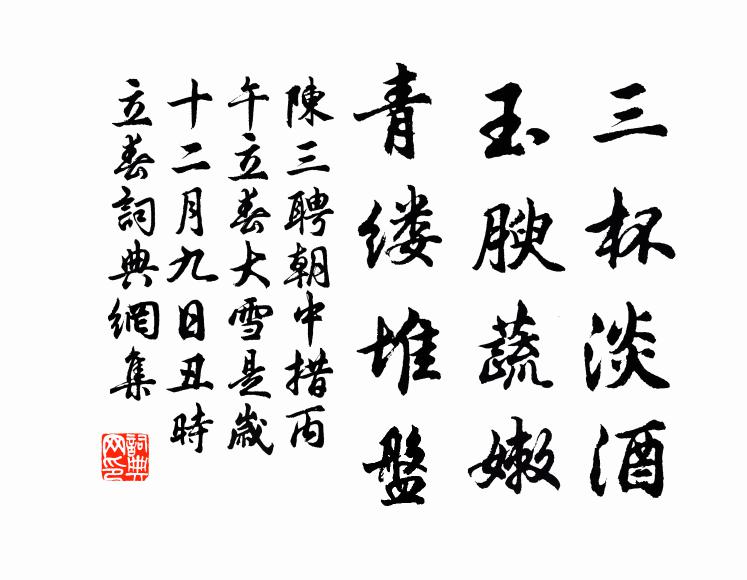 三杯淡酒
玉腴蔬嫩
青缕堆盤
陳三聘朝中措丙
午立春大雪是歲
十二月九日丑時
立春詞典網集
詞典
网印